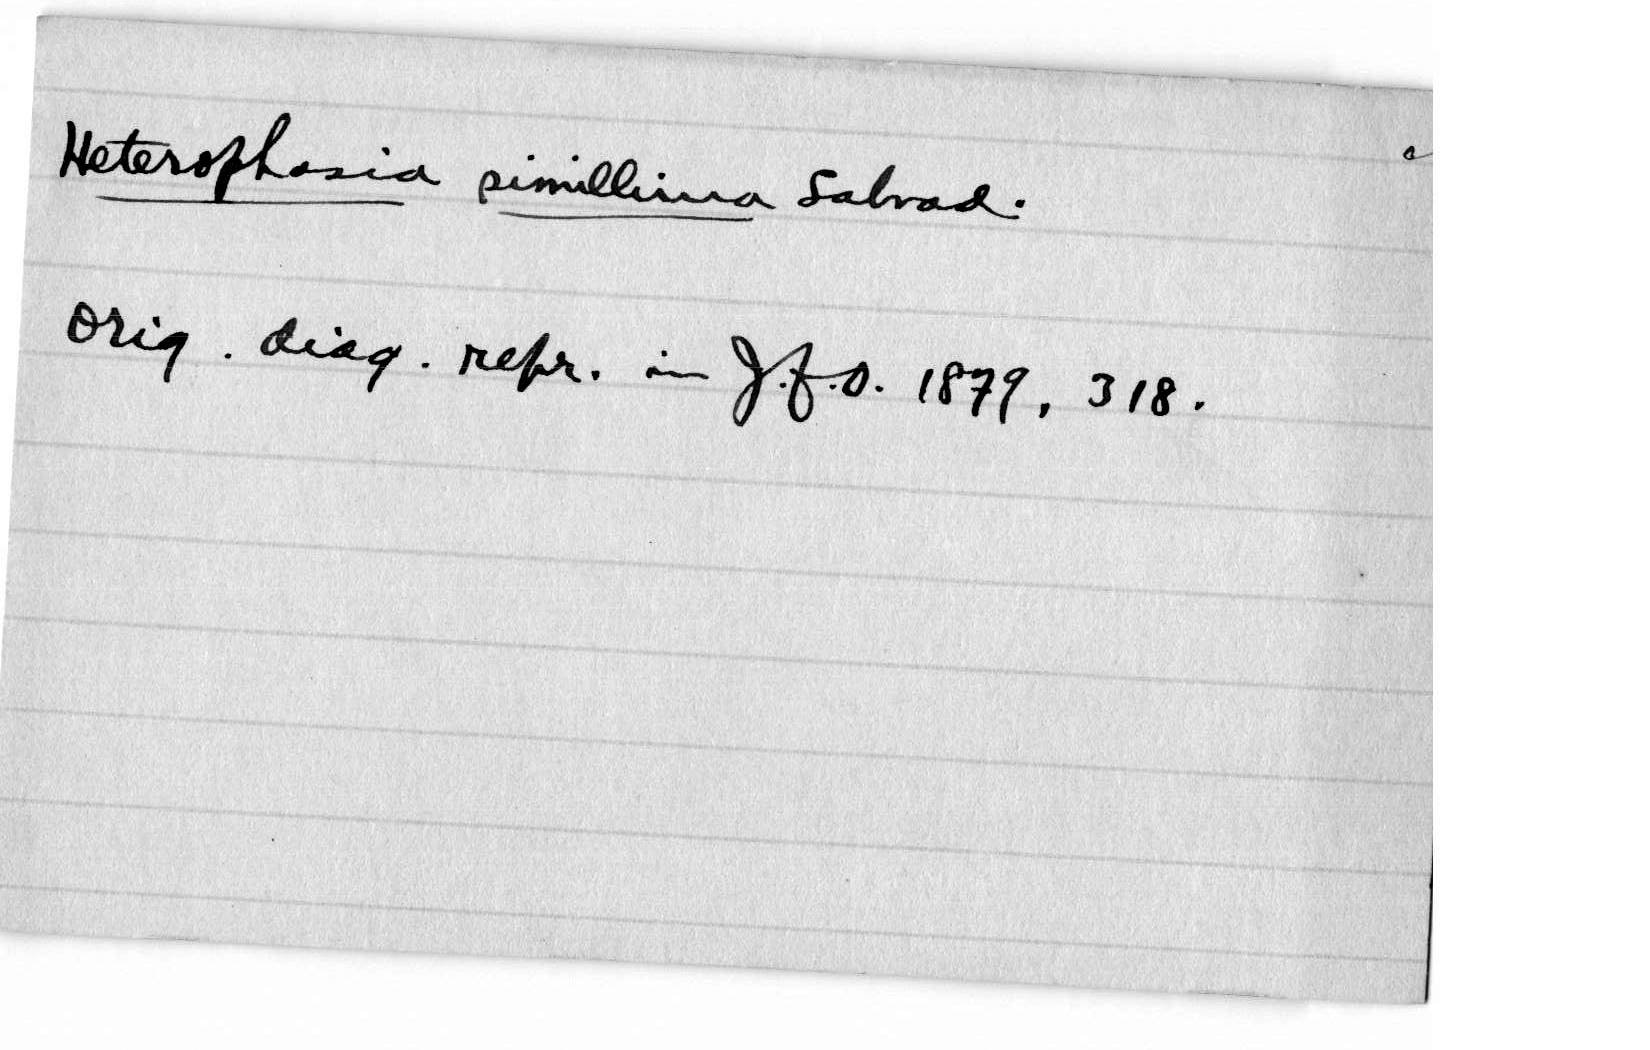 Heterophasia simillima Salvad.
Orig. diag. repr. in J.f.O. 1879, 318.